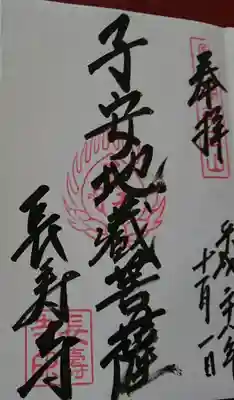 奉拝
平成二十八年
十一月一日
子安地蔵菩薩
長寿寺